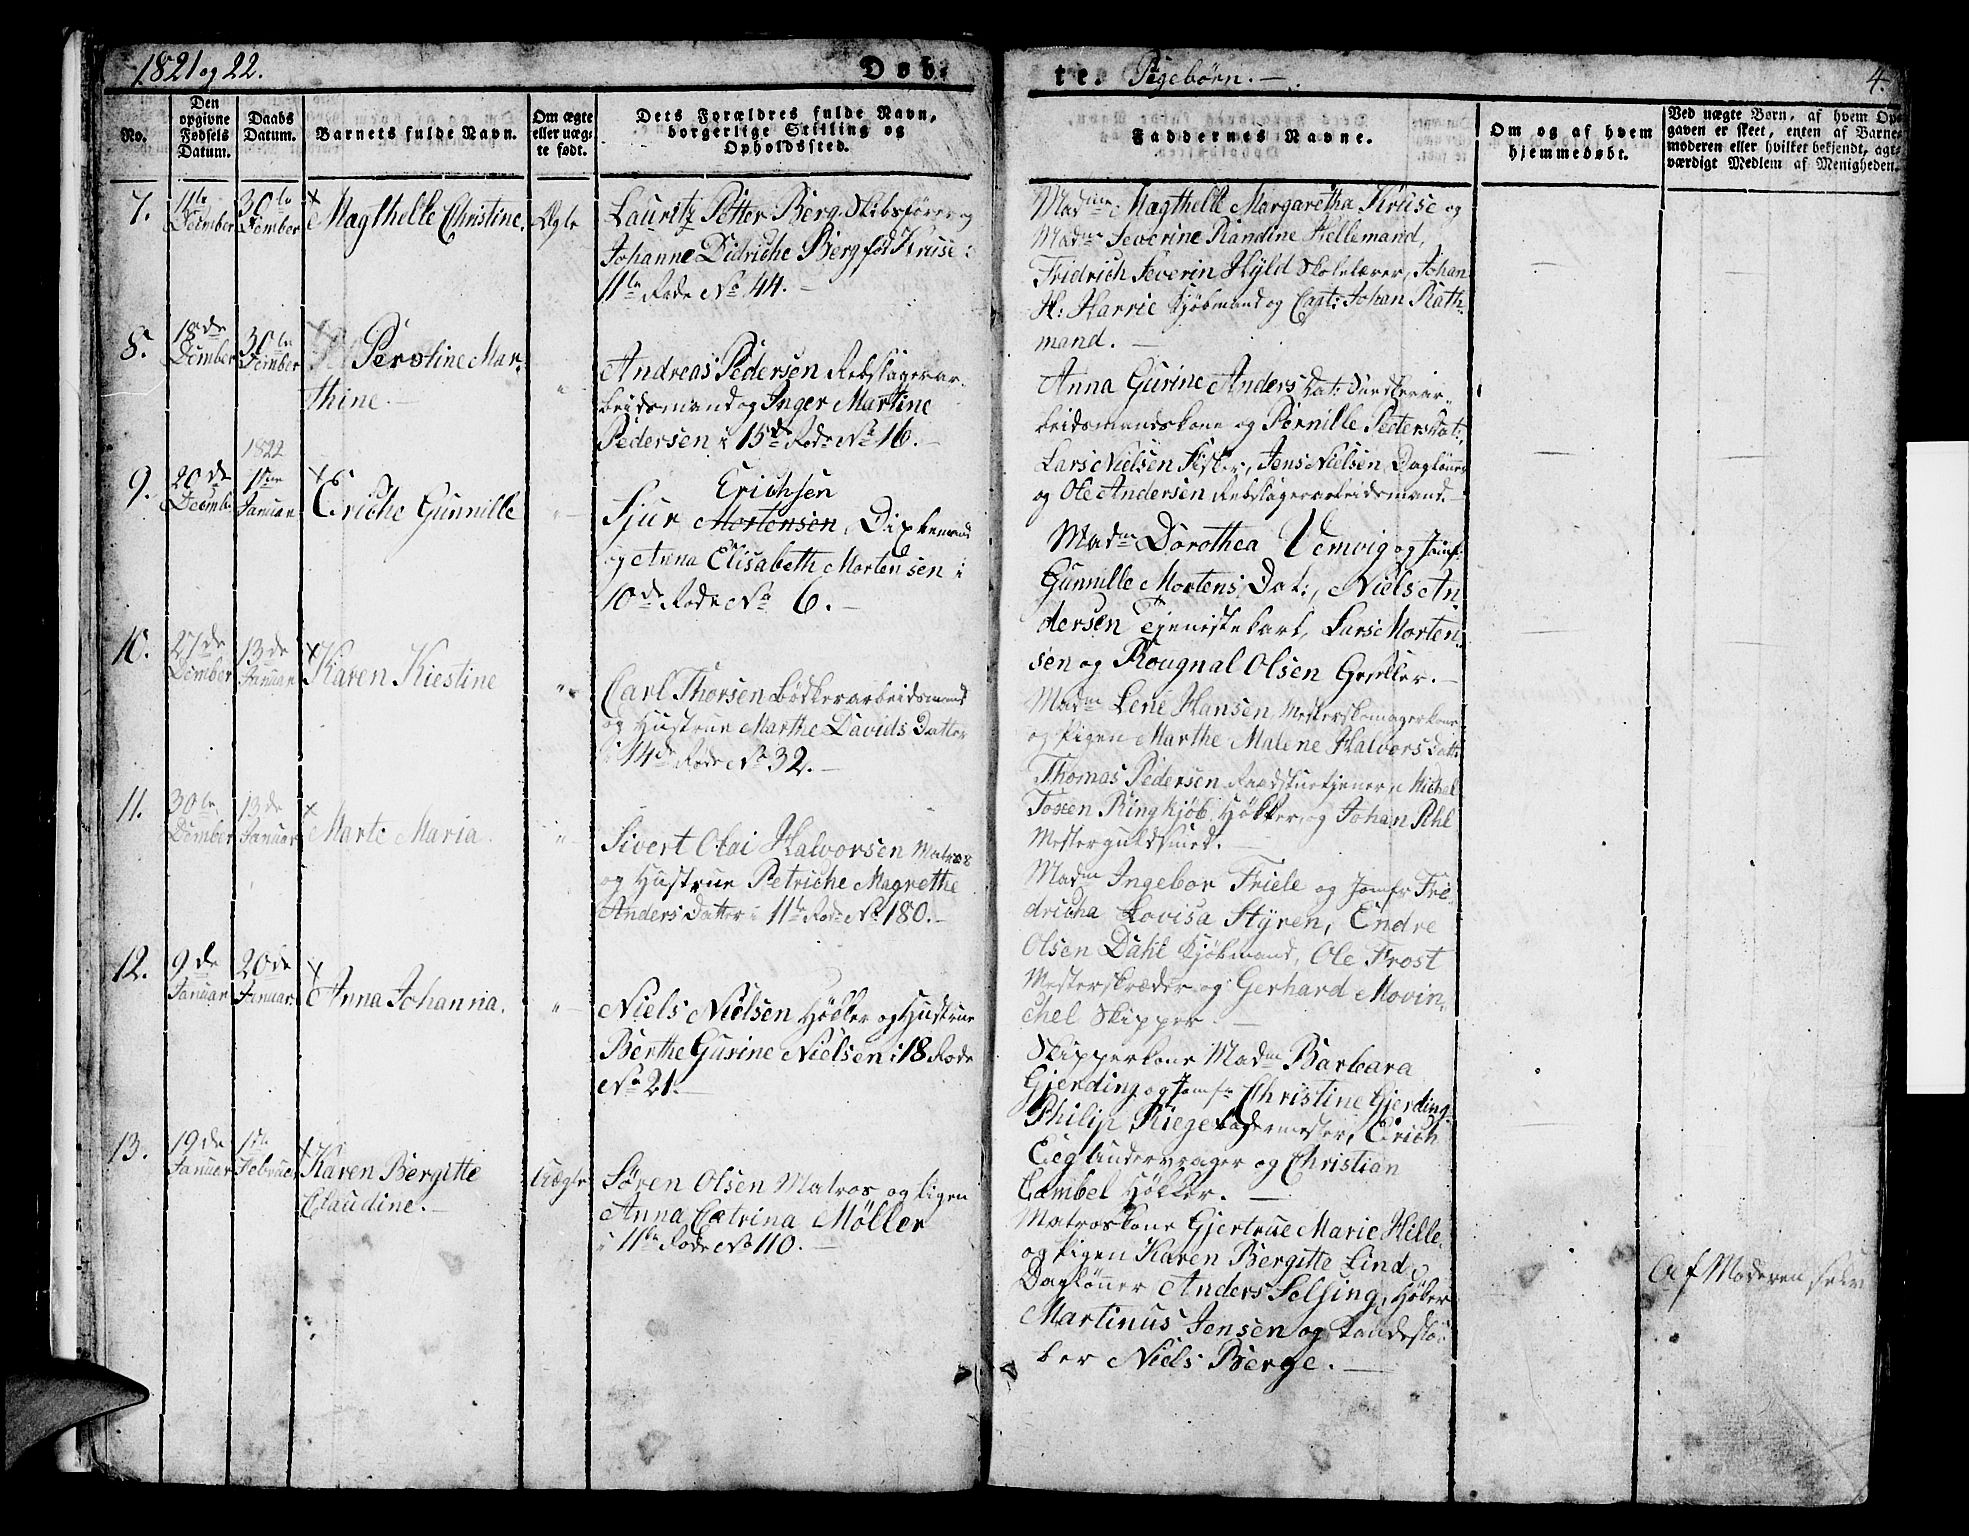 1821 og 22.
Døb-
te. Pigebørn. —
4.
No.
Den opgivne Fødsels Datum.
Daabs Datum.
Barnets fulde Navn.
Om ægte eller uæg-
te født.
Dets Forældres fulde Navn,
borgerlige Stilling og
Opholdssted.
Faddernes Navne.
Om og af hvem
hjemmedøbt.
Ved uægte Børn, af hvem Op-
gaven er skeet, enten af Barne-
moderen eller hvilket bekjendt, agt-
værdigt Medlem af Menigheden.
7.
11te Dcember
30te Dcember
Magthelle Christine.
Ægte
Lauritz Petter Berg Skibsfører og
Johanne Didriche Berg fød Kruse i
11te Rode No 44. —
Madme Magthelle Margaretha Kruse og
Madme Severine Randine Hellemand,
Fridrich Severin Hyld Skolelærer, Johan
H: Harrie Kjøbmand og Capt: Johan Rath-
mand. —
8.
18de Dcember
30te Dcember
Perotine Mar-
thine. —
"
Andreas Pedersen Rebslagerar-
beidsmand og Inger Martine
Pedersen i 15de Rode No 16. —
Anna Gurine Anders Dat:
beidsmandskone og Pernille Peters Dat:,
Lars Nielsen Fisker, Jens Nielsen Dagløner
og Ole Andersen Rebslagerarbeidsmand. —
1822
9.
20de Decemb.
1ste Januar
Eriche Gunnille
"
Erichsen
Sjur Mortensen,
og Anna Elisabeth Mortensen i
10de Rode No 6. —
Madme Dorothea Vemvig og Jomf:
Gunnille Mortens Dat:, Niels An-
dersen Tjenistekarl, Lars Morten-
sen og Rougnal Olsen Geseller. —
10.
27de Dcember
13de Januar
Karen Kiestine
"
Carl Thorsen Bødkerarbeidsmand
og Hustrue Marthe Davids Datter
i 14de Rode No 32. —
Madme Lene Hansen Mesterskomagerkone
og Pigen Marthe Malene Halvors Datt:
Thomas Pedersen Raadstuetjener, Michel
Toxen Ringkjøb. Høkker, og Johan Pihl
Mesterguldsmed. —
11.
30te Dcember
13de Januar
Marte Maria.
"
Sivert Olai Halvorsen Matros
og Hustrue Petriche Magrethe
Anders Datter i 11te Rode No 180. —
Madme Ingebor Friele og Jomfr Fri-
dricha Lovisa Styren, Endre
Olsen Dahl Kjøbmand, Ole Frost
Mesterskræder og Gerhard Movin-
chel Skipper. —
12.
9de Januar
20de Januar
Anna Johanna.
"
Niels Nielsen Høkker og Hustrue
Berthe Gurine Nielsen i 18 Rode
No 21. —
Skipperkone Madme Barbara
Gjerding og Jomfr Christine Gjerding,
Philip Rieger Lodermester, Erich
og Christian
Gambel Høkker. —
13.
19de Januar
1ste Februar
Karen Bergitte
Claudine. —
Uægte
Søren Olsen Matros og Pigen
Anna Catrina Møller
i 11te Rode No 110. —
Matroskone Gjertrue Marie Hille.
og Pigen Karen Bergitte Lind,
Dagløner Anders Selsing, Høker
Martinus Jensen og
ber Niels Berge. —
Af Moderen selv